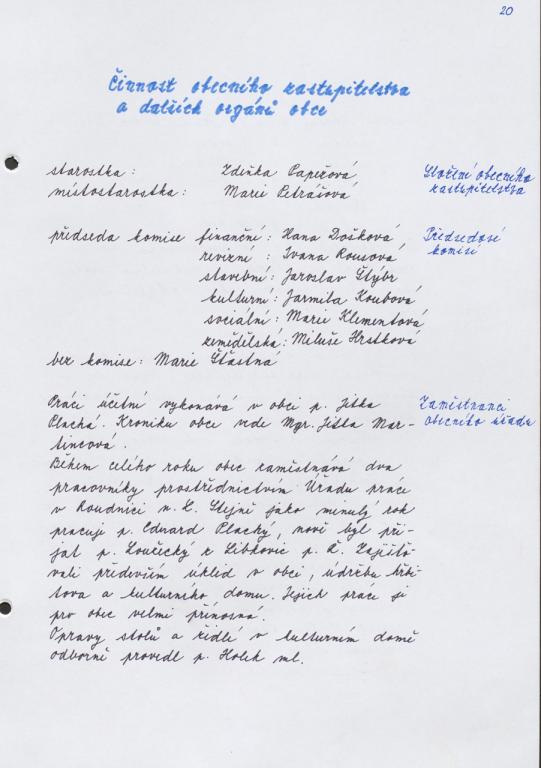 20
Činnost obecního zastupitelstva
a dalších orgánů obce
starostka: Zdiňka Papežová
místostarostka: Marie Petrášová
Složení obecního
zastupitelstva
předseda komise finanční: Hana Došková
revizní: Ivana Rousová
stavební: Jaroslav Štýbr
kulturní: Jarmila Koubová
sociální: Marie Klementová
zemědělská: Miluše Hrstková
bez komise: Marie Šťastná
Předsedové
komisí
Práci účetní vykonává v obci p. Jitka
Plachá. Kroniku obce vede Mgr. Jitka Mar-
tincová.
Během celého roku obec zaměstnává dva
pracovníky prostřednictvím Úřadu práce
v Roudnici n. L. Stejně jako minulý rok
pracuje p. Eduard Placký, nově byl při-
jat p. Loučický z Libkovic p. Ř. Zajišťo-
vali především úklid v obci, údržbu hřbi-
tova a kulturního domu. Jejich práce je
pro obec velmi přínosná.
Opravy stolů a židlí v kulturním domě
odborně provedl p. Holek ml.
Zaměstnanci
obecního úřadu